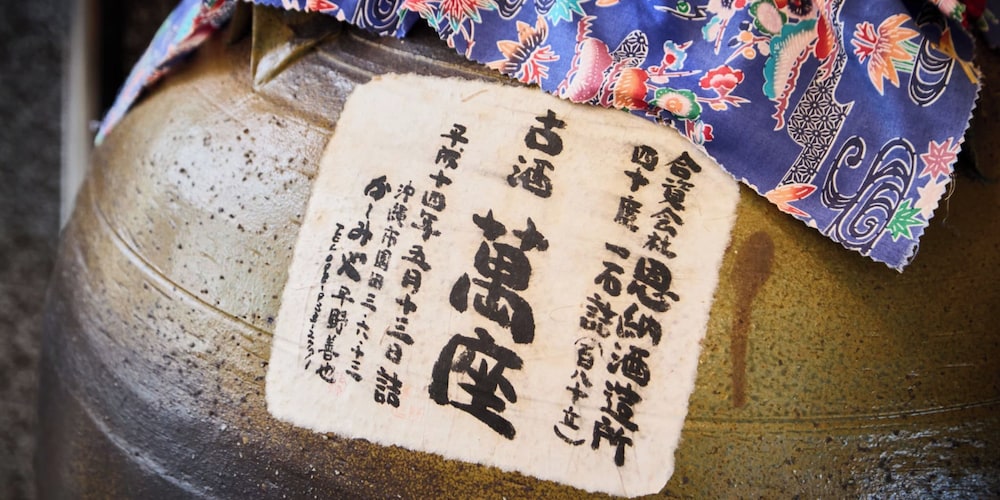 合資会社 恩納酒造所
四十度 一石詰(百八十立)
古酒 萬座
平成十四年五月十三日 詰
沖縄市園田三・六・十三
かーみや 平野善也